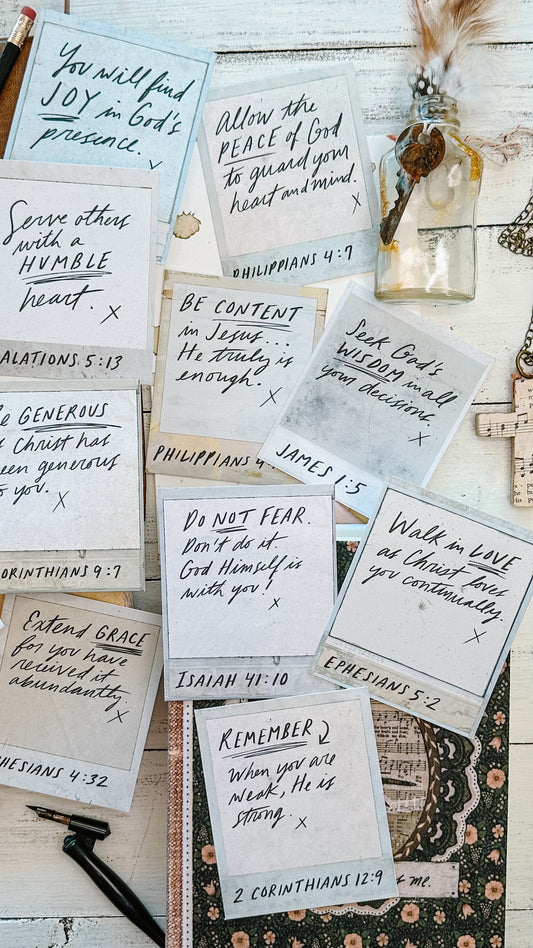 You will find
JOY in God's
presence.
Allow the
PEACE of God
to guard your
heart and mind.
x
PHILIPPIANS 4:7
Serve others
with a
HUMBLE
heart. x
ALATIONS 5:13
BE CONTENT
in Jesus...
He truly is
enough. x
PHILIPPIANS 4
Seek God's
WISDOM in all
your decisions.
x
JAMES 1:5
e GENEROUS
s Christ has
een generous
o you. x
ORINTHIANS 9:7
DO NOT FEAR.
Don't do it.
God Himself is
with you! x
ISAIAH 41:10
Walk in LOVE
as Christ loves
you continually.
x
EPHESIANS 5:2
Extend GRACE
for you have
received it
abundantly.
x
HESIANS 4:32
REMEMBER
When you are
weak, He is
strong. x
2 CORINTHIANS 12:9
of me.